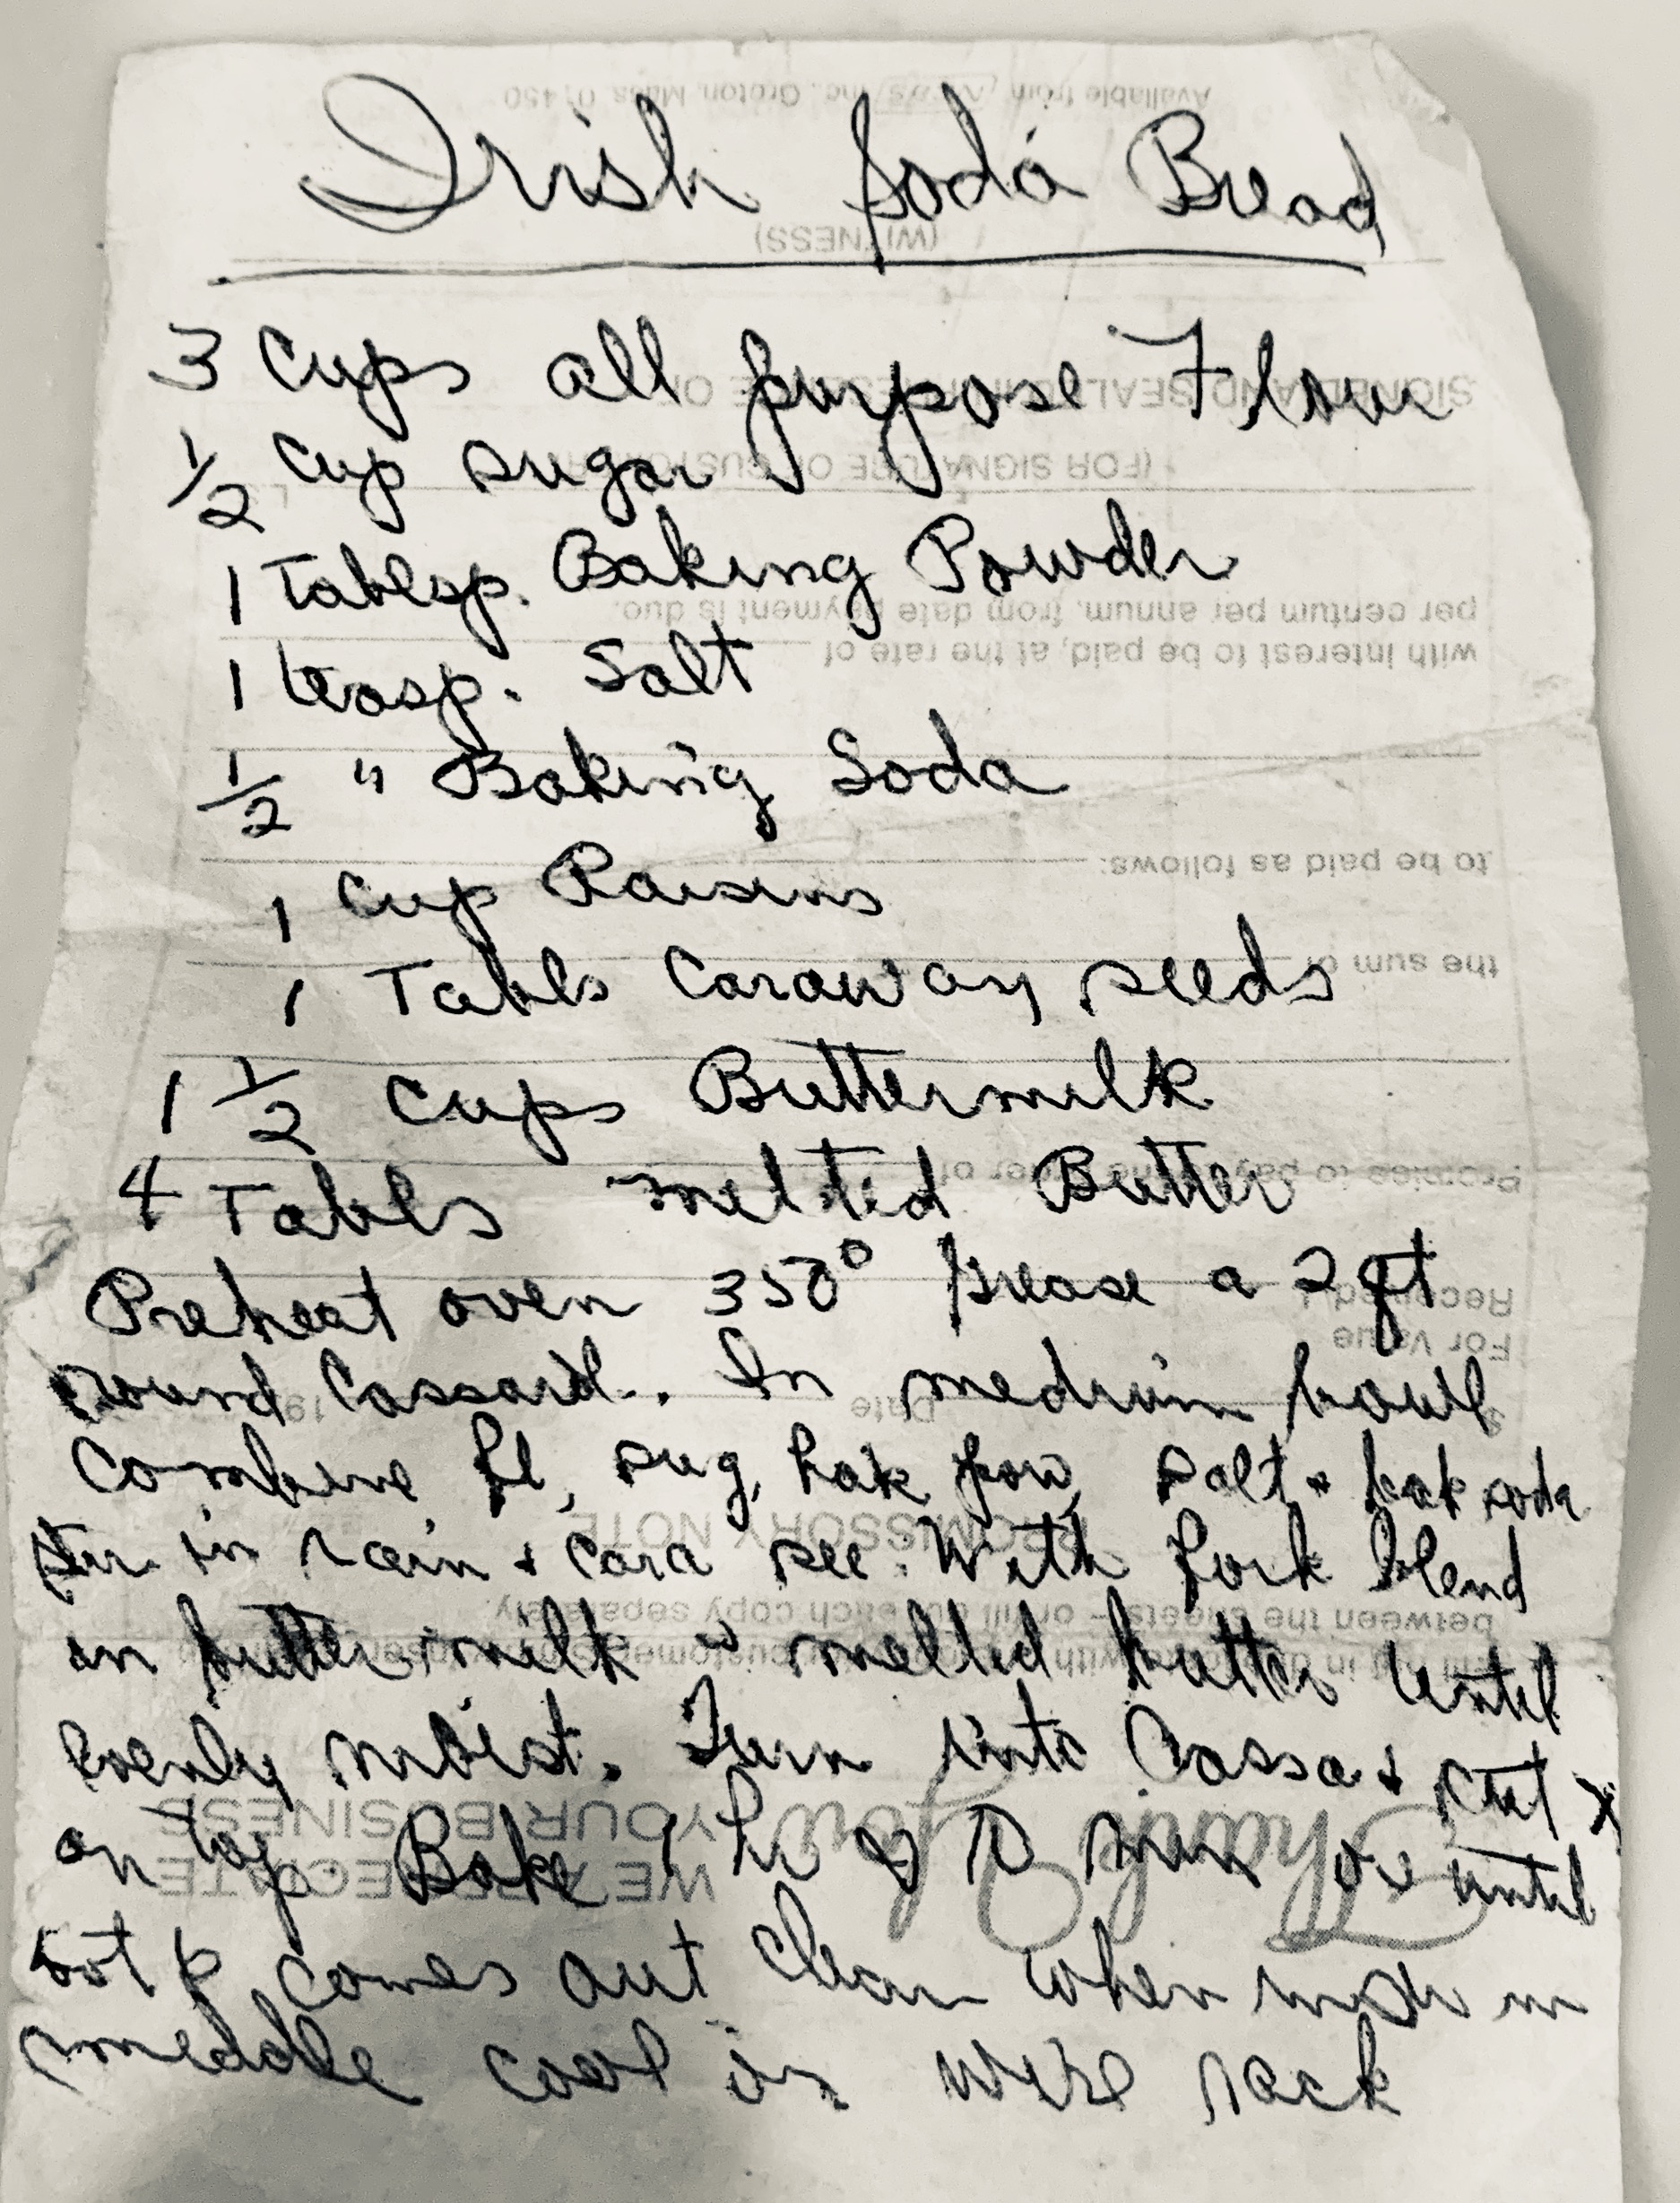 Irish Soda Bread
3 Cups all purpose Flour
1/2 Cup sugar
1 Tablesp. Baking Powder
1 teasp. Salt
1/2 " Baking Soda
1 Cup Raisins
1 Tabls Caraway seeds
1 1/2 Cups Buttermilk
4 Tabls melted Butter
Preheat oven 350° grease a 2 qt
round Cassaril. In medium bowl
Combine fl, sug, bak pow, salt + bak soda
stir in rain + Cara see. With fork blend
in buttermilk + melted butter until
evenly moist. Turn into Cassa + cut x
on top Bake 1 hr 10 min or until
comes out clean when in
middle cool in wire rack
Available from Inc., Groton, Mass. 01450
(WITNESS)
SIGNED AND SEALED IN PRESENCE OF
(FOR SIGNATURE OF CUSTOMER)
per centum per annum, from date payment is due.
with interest to be paid, at the rate of
to be paid as follows:
the sum of
Promises to pay to the order of
For Value
Received
Date 19
PROMISSORY NOTE
between the sheets – or fill out each copy separately.
WE APPRECIATE
YOUR BUSINESS
Thank You